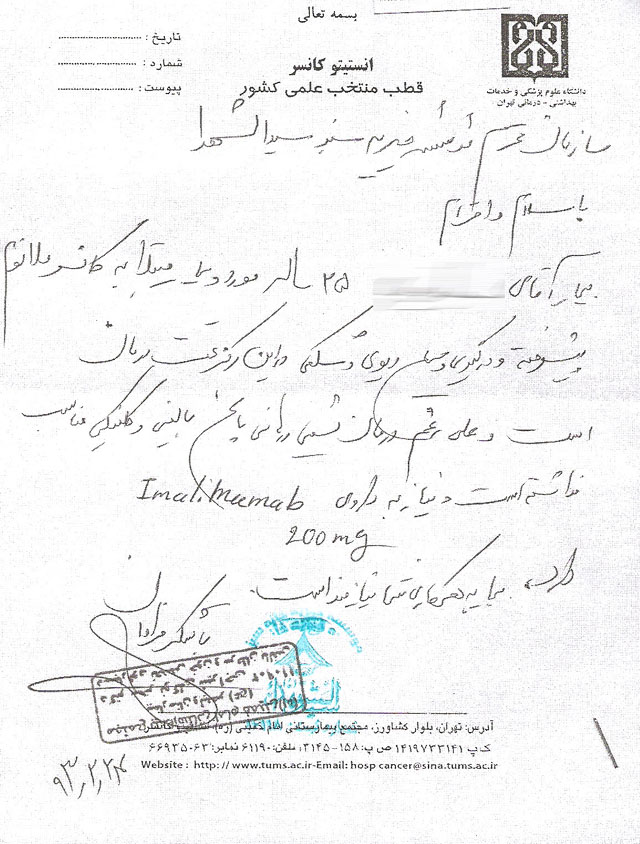 بسمه تعالی
انستیتو کانسر
قطب منتخب علمی کشور
تاریخ :
شماره :
پیوست :
دانشگاه علوم پزشکی و خدمات
بهداشتی - درمانی تهران
سازمان محترم مؤسسه خیریه سید الشهدا
با سلام و احترام
بیمار آقای ۲۵ ساله مورد مبتلا به کانسر ملانوم
پیشرفته و درگیری ریوی و شکمی در این مرکز تحت درمان
است و علی رغم درمان شیمی درمانی پاسخ بالینی و کلینیکی مناسب
نداشته است و نیاز به داروی
200 mg
دارد. نیازمند است.
با تشکر فراوان
آدرس: تهران، بلوار کشاورز، مجتمع بیمارستانی امام خمینی (ره)
ک پ ۱۴۱۹۷۳۳۱۴۱ ص پ: ۱۵۸-۳۱۴۵، تلفن: ۶۱۱۹۰ نمابر: ۶۶۹۳۵۰۶۳
Website : http://www.tums.ac.ir-Email: hosp cancer@sina.tums.ac.ir
۹۳,۲,۲۴